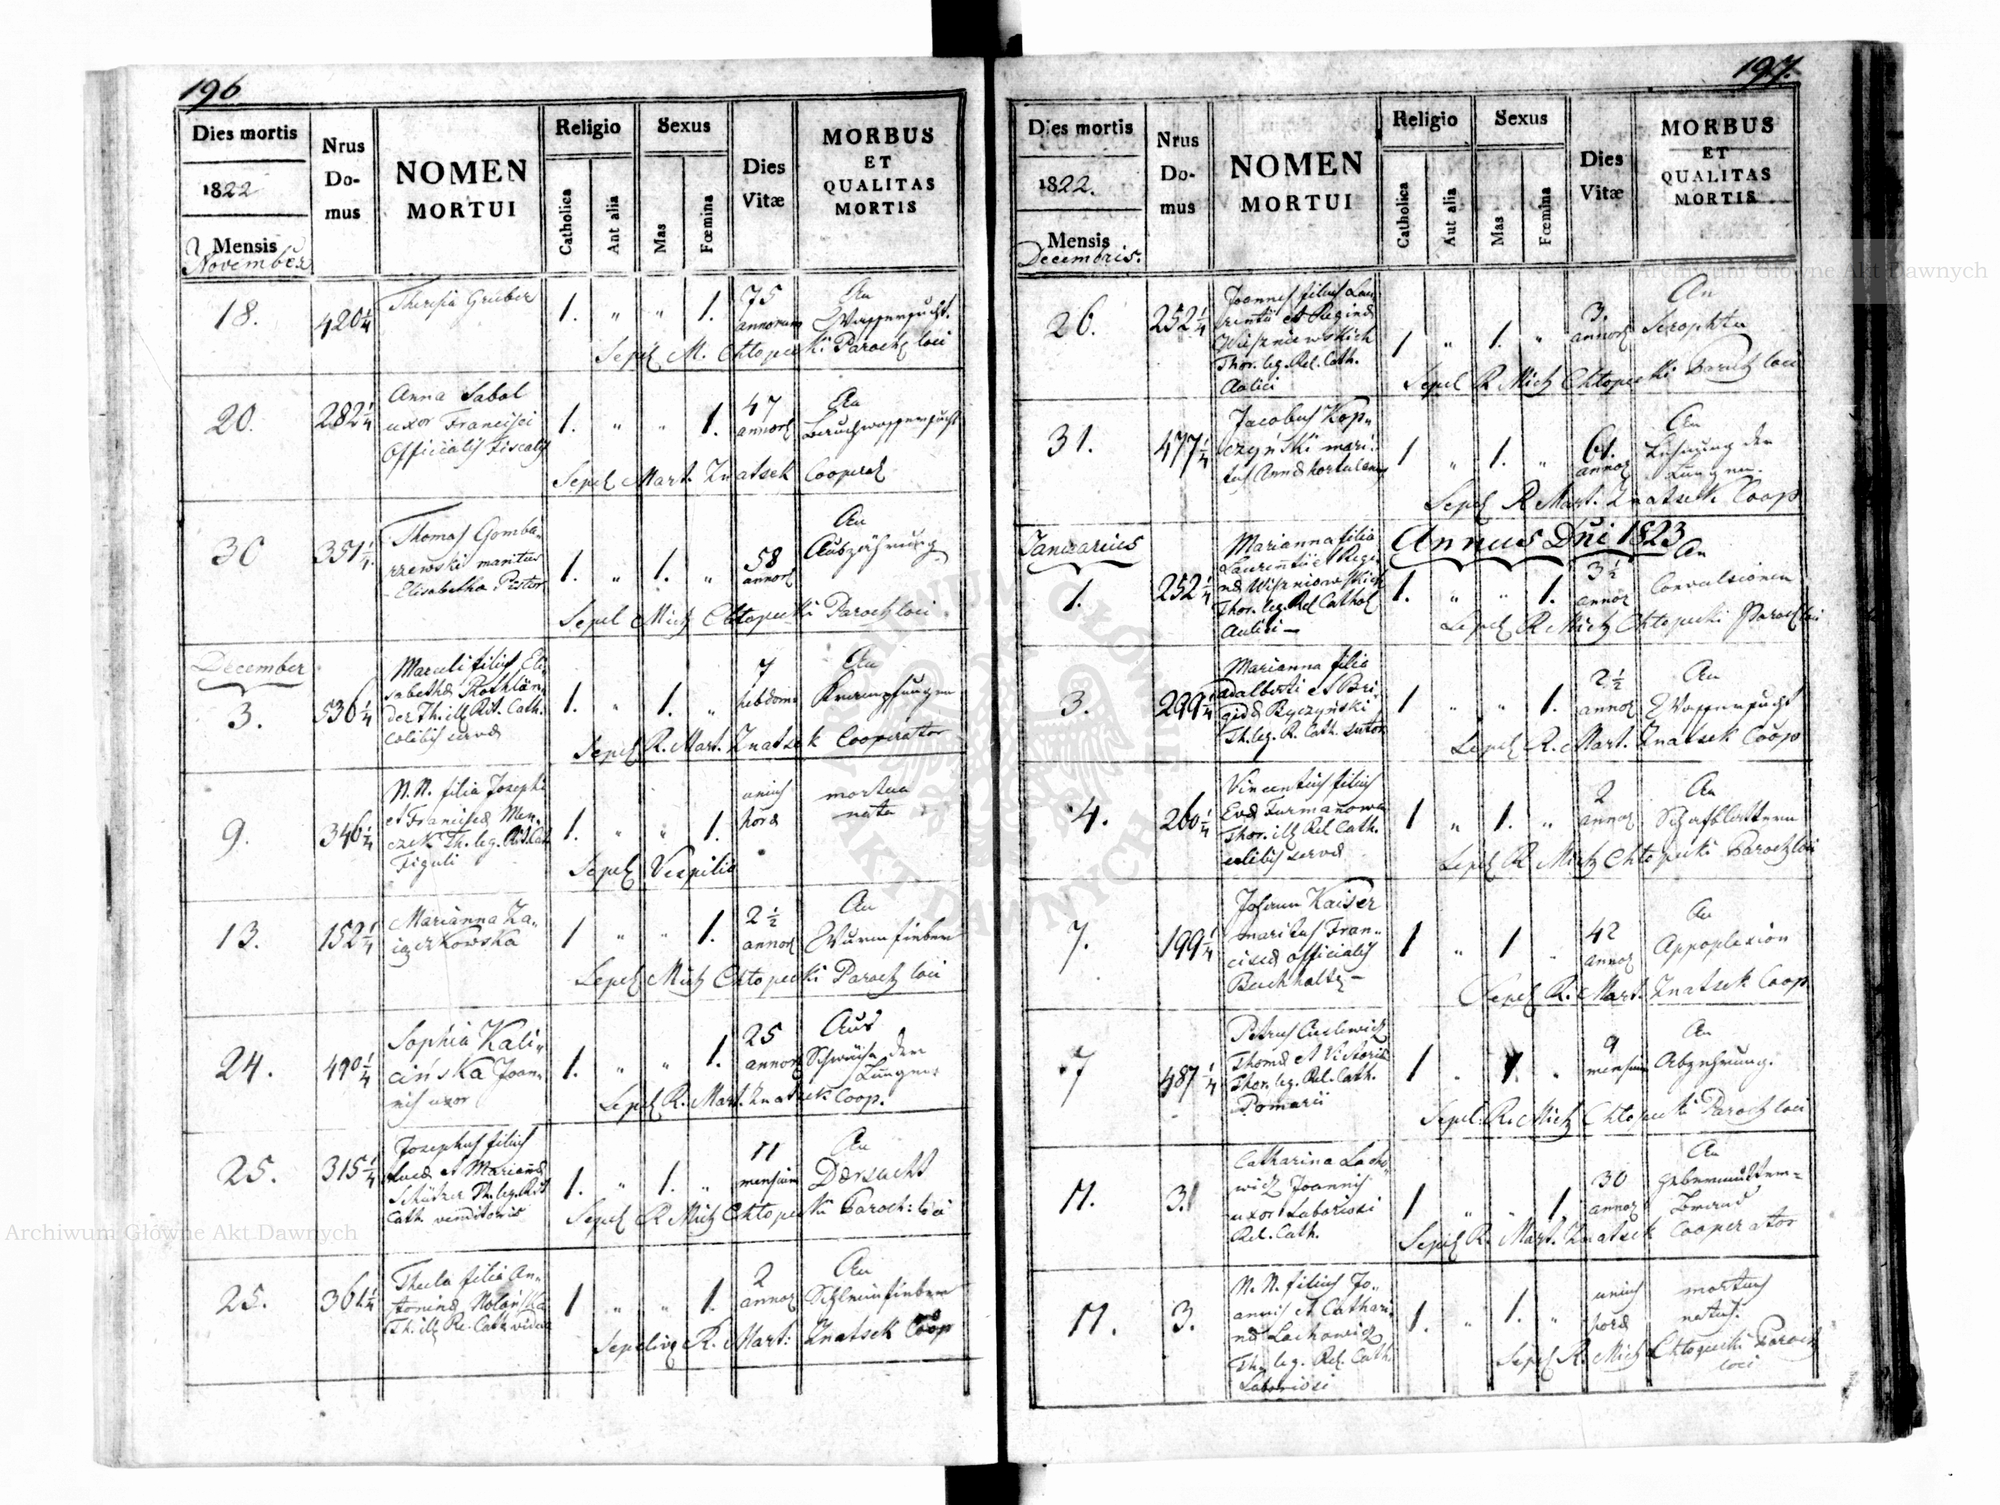 196
Dies mortis
1822
Mensis
November
Nrus
Do-
mus
NOMEN
MORTUI
Religio
Catholica
Aut alia
Sexus
Mas
Fœmina
Dies
Vitæ
MORBUS
ET
QUALITAS
MORTIS
18.
420 1/4
Theresia Gruber
1. " " 1.
75
annorum
An
Wassersucht.
Sepel M. Chłopecki Paroch loci
20.
282 1/4
Anna Sabol
uxor Francisci
Officialis Fiscalis
1. " " 1.
47
annor
An
Bauchwassersucht
Sepel Mart. Znatsek Cooperat
30
351 1/4
Thomas Gomba-
rzewski maritus
Elisabetha Pistor
1. " 1. "
58
annor
An
Auszährung
Sepel Mich Chłopecki Paroch loci
December
3.
536 1/4
filius Eli-
sabetha Rothlän-
der Th. ill. Rit. Cath.
celibis serva
1. " 1. "
7
hebdom
An
Krampfungen
Sepel R. Mart. Znatsek Cooperator
9.
346 1/4
N. N. filia Josephi
et Francisca Men-
czek Th. leg. Rit. Cath
Figuli
1. " " 1.
unius
hora
mortua
nata
Sepel Vespilio
13.
152 1/4
Marianna Za-
iączkowska
1 " " 1.
2 1/2
annor
An
Wurmfieber
Sepel Mich Chłopecki Paroch loci
24.
490 1/4
Sophia Kali-
cińska Joan-
nis uxor
1. " " 1.
25
annor
Aus
Schwäche der
Lungen.
Sepel R. Mart. Znatsek Coop.
25.
315 1/4
Josephus filius
Luca et Mariana
Schützer Th. leg. Rit
Cath. venditoris
1. " 1. "
11
mensium
An
Dörsucht
Sepel R Mich Chłopecki Paroch: loci
25.
361 1/4
Thecla filia An-
tonina Nolańska
Th. ill. Re. Cath vidua
1 " " 1.
2
annor
An
Schleimfieber
Sepelivit R. Mart: Znatsek Coop
197.
Dies mortis
1822.
Mensis
Decembris.
Nrus
Do-
mus
NOMEN
MORTUI
Religio
Catholica
Aut alia
Sexus
Mas
Fœmina
Dies
Vitæ
MORBUS
ET
QUALITAS
MORTIS
26.
252 1/4
Joannes filius Lau-
rentii et Regina
Wiszniewskich
Thor. leg. Rel. Cath.
Aulici
1 " 1. "
3.
annor
An
Scrophlu
Sepel R Mich Chłopecki Paroch loci
31.
477 1/4
Jacobus Kop-
czyński mari-
tus Anna hortulanus
1 " 1. "
61.
annor
An
Lähmung der
Lungen.
Sepel R Mart. Znatsek Coop
Januarius
Annus Dni 1823
1.
252 1/4
Marianna filia
Laurentii et Regi-
na Wiszniowskich
Thor. leg. Rel Cathol
Aulici —
1. " " 1.
3 1/2
annor
An
Convulsionen
Sepel R Mich Chłopecki Paroch loci
3.
299 1/4
Marianna filia
Adalberti et Bri-
gida Byczyński
Th. leg. R. Cath. sutor
1 " " 1.
2 1/2
annor
An
Wassersucht
Sepel R. Mart. Znatsek Coop
4.
260 1/4
Vincentius filius
Eva Furmanowa
Thor. ill Rel Cath.
celibis serva
1 " 1. "
2
annor
An
Schafblattern
Sepel R. Mich Chłopecki Paroch loci
7.
199 1/4
Johann Kaiser
maritus Fran-
cisca officialis
Buchhaltg —
1 " 1 "
42
annor
An
Appoplexion
Sepel R. Mart. Znatsek Coop
7
487 1/4
Petrus Cielewicz
Thoma et Victoria
Thor. leg. Rel. Cath.
Pomarii
1 " 1. "
9
mensium
An
Abzehrung.
Sepel. R. Mich Chłopecki Paroch loci
11.
3.
Catharina Lacho-
wicz Joannis
uxor Laboriosi
Rel. Cath.
1 " " 1.
30
annor
An
Gebermutter-
Brand
Sepel R. Mart. Znatsek Cooperator
11.
3.
N. N. filius Jo-
annis et Cathari-
na Lachowicz
Th. leg. Rel. Cath
Laboriosi
1. " 1. "
unius
hora
mortuus
natus.
Sepel R. Mich Chłopecki Paroch
loci
Archiwum Główne Akt Dawnych
Archiwum Główne Akt Dawnych
ARCHIWUM GŁÓWNE AKT DAWNYCH